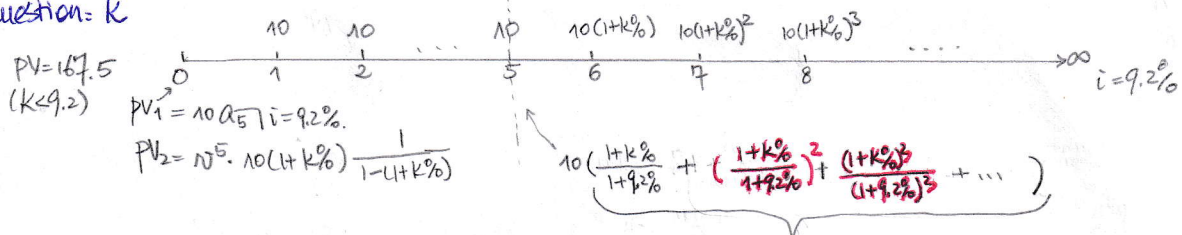 uestion= K
10 10 .... 10 10(1+K%) 10(1+K%)² 10(1+K%)³ ....
PV=167.5
0 1 2 5 6 7 8 ∞ i=9.2%
(K<9.2)
PV₁ = 10 a5̅| i=9.2%.
PV₂ = v⁵. 10(1+K%) 1/1-(1+K%)
10( 1+K%/1+9.2% + (1+K%/1+9.2%)² + (1+K%)³/(1+9.2%)³ + ... )